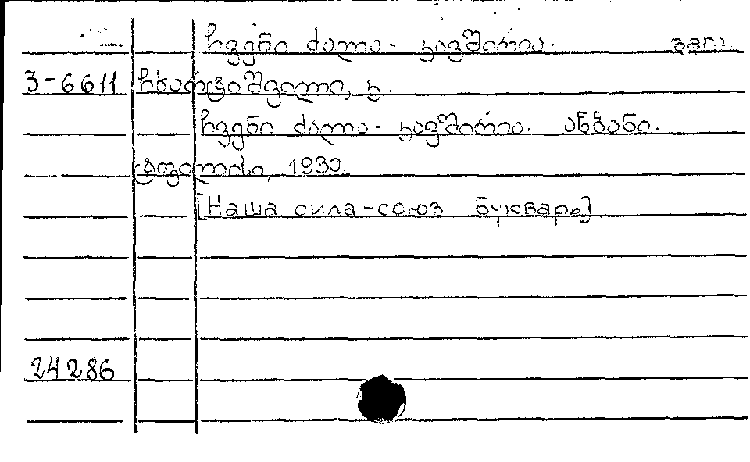 ჩვენი ძალა - კავშირია.
3-6611 ჩხარტიშვილი, ხ.
ჩვენი ძალა - კავშირია. ანბანი.
ტფილისი, 1930.
[Наша сила-союз Букварь]
24286